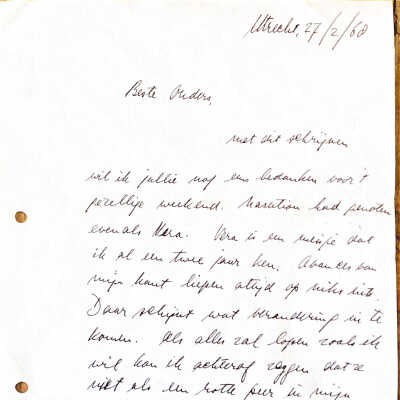 Utrecht, 27/2/68
Beste Ouders,
met dit schrijven
wil ik jullie nog eens bedanken voor 't
gezellige weekend. had genoten
evenals Vera. Vera is een meisje dat
ik al een twee jaar ken. Avances van
mijn kant liepen altijd op niks uit.
Daar schijnt wat verandering in te
komen. Als alles zal lopen zoals ik
wil kan ik achteraf zeggen dat ze
niet als een rotte peer in mijn